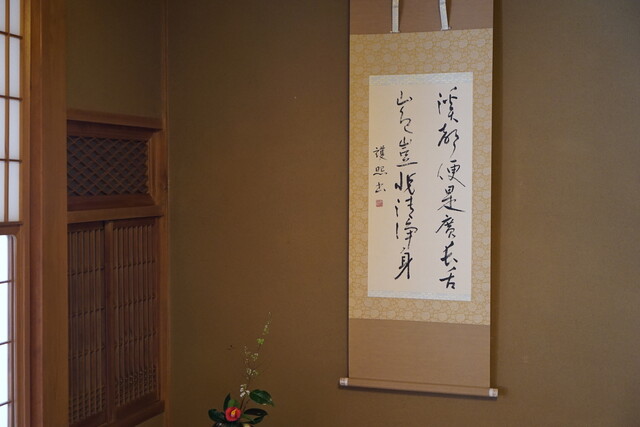 溪聲便是廣長舌
山色豈非清浄身
護熙書